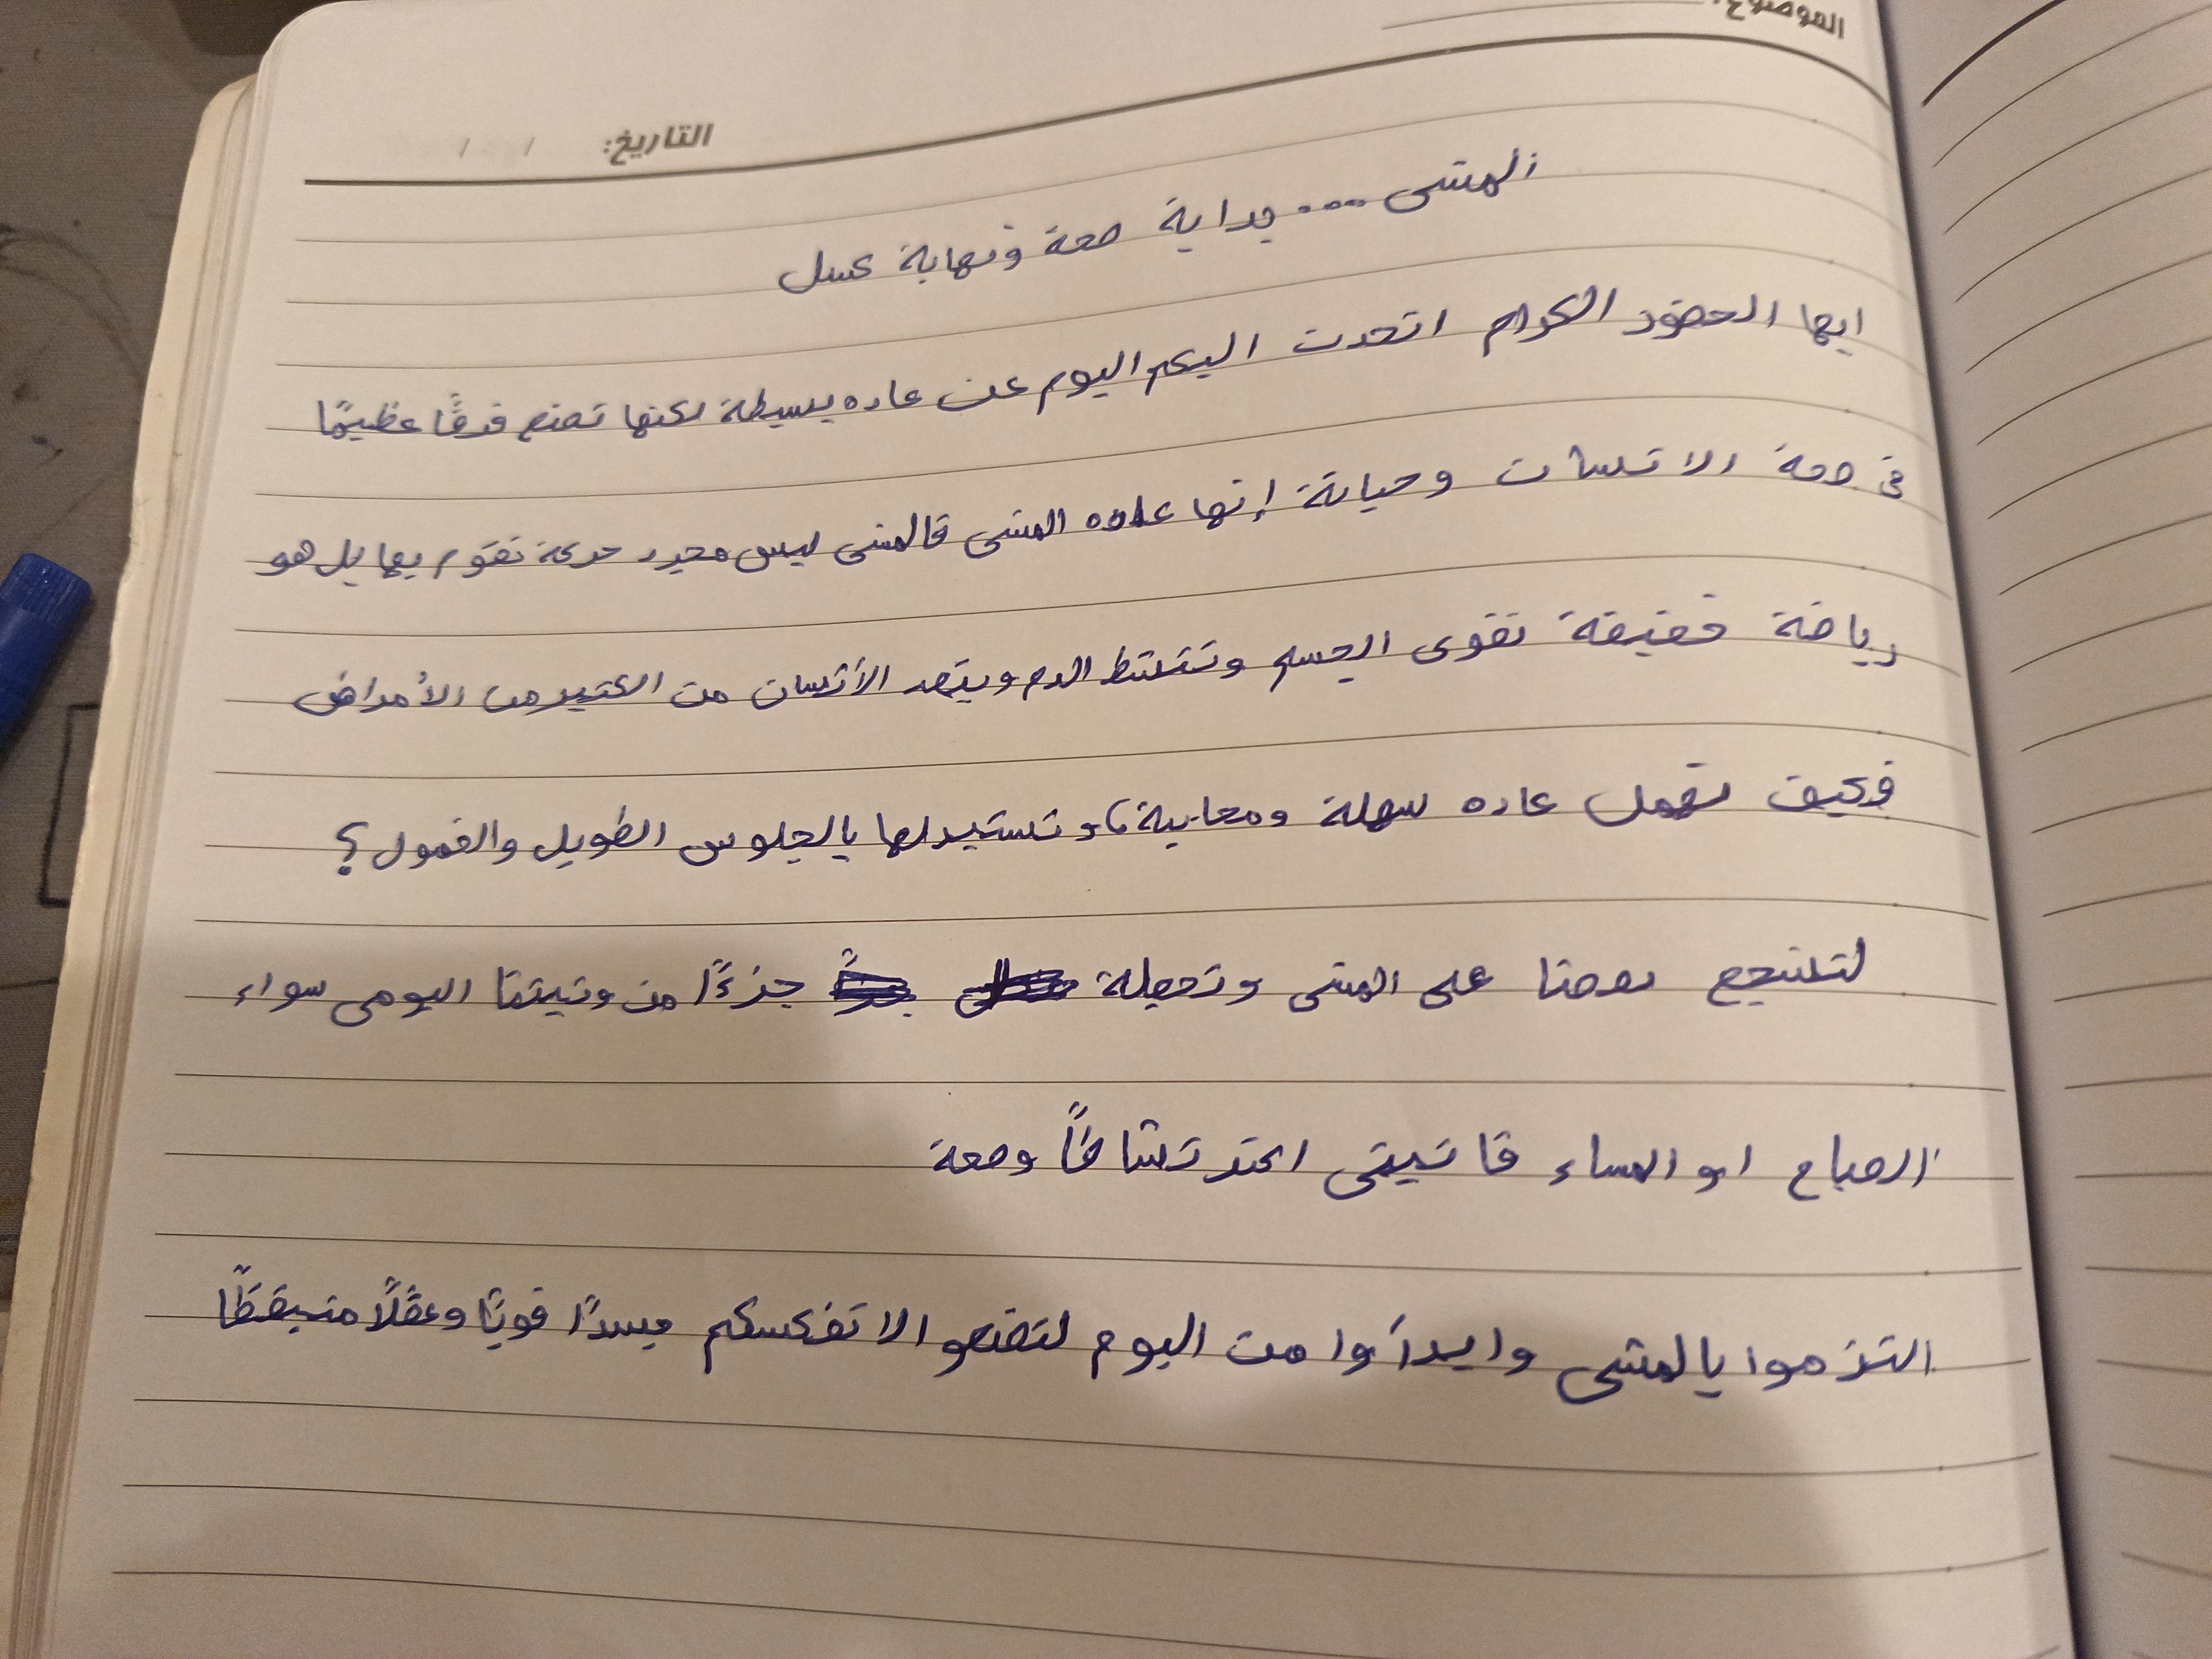 الموضوع:
التاريخ: / /
المشى .... بداية صحة ونهاية كسل
ايها الحضور الكرام اتحدث اليكم اليوم عن عاده بسيطة لكنها تصنع فرقًا عظيمًا
فى صحة الانسان وحياتة إنها عاده المشى فالمشى ليس مجرد حركة نقوم بها بل هو
رياضة خفيفة تقوى الجسم وتنشط الدم ويبعد الأنسان من الكثير من الأمراض
فكيف نهمل عاده سهلة ومجانية، و نستبدلها بالجلوس الطويل والخمول؟
لنشجع بعضنا على المشى ونجعلة جزءًا من وتيتنا اليومى سواء
الصباح او المساء فا نبقى اكثر نشاطًا وصحة
التزموا بالمشى وابدأوا من اليوم لتصنعو الانفسكم جسدًا قويًا وعقلًا متيقظًا